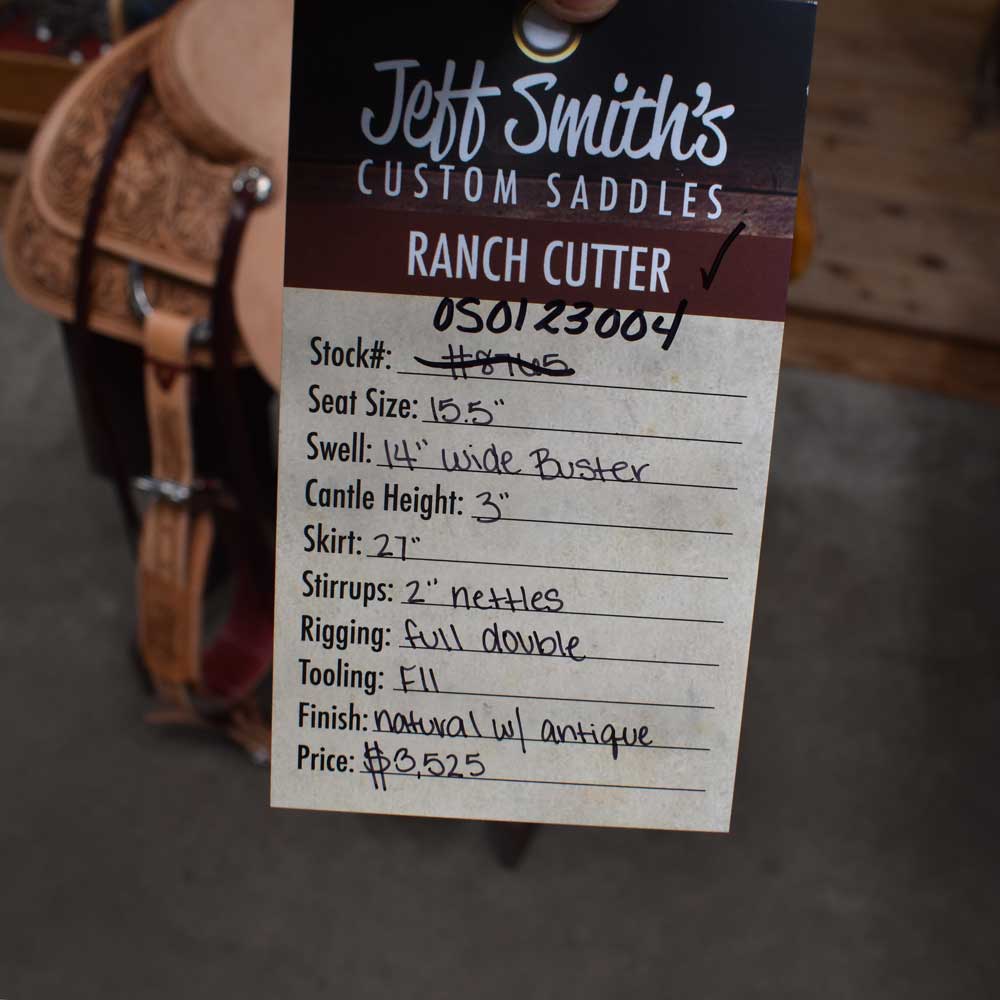 Jeff Smith's
CUSTOM SADDLES
RANCH CUTTER ✓
0S0123004
Stock#: #8765
Seat Size: 15.5"
Swell: 14" wide Buster
Cantle Height: 3"
Skirt: 27"
Stirrups: 2" nettles
Rigging: full double
Tooling: F11
Finish: natural w/ antique
Price: $3,525